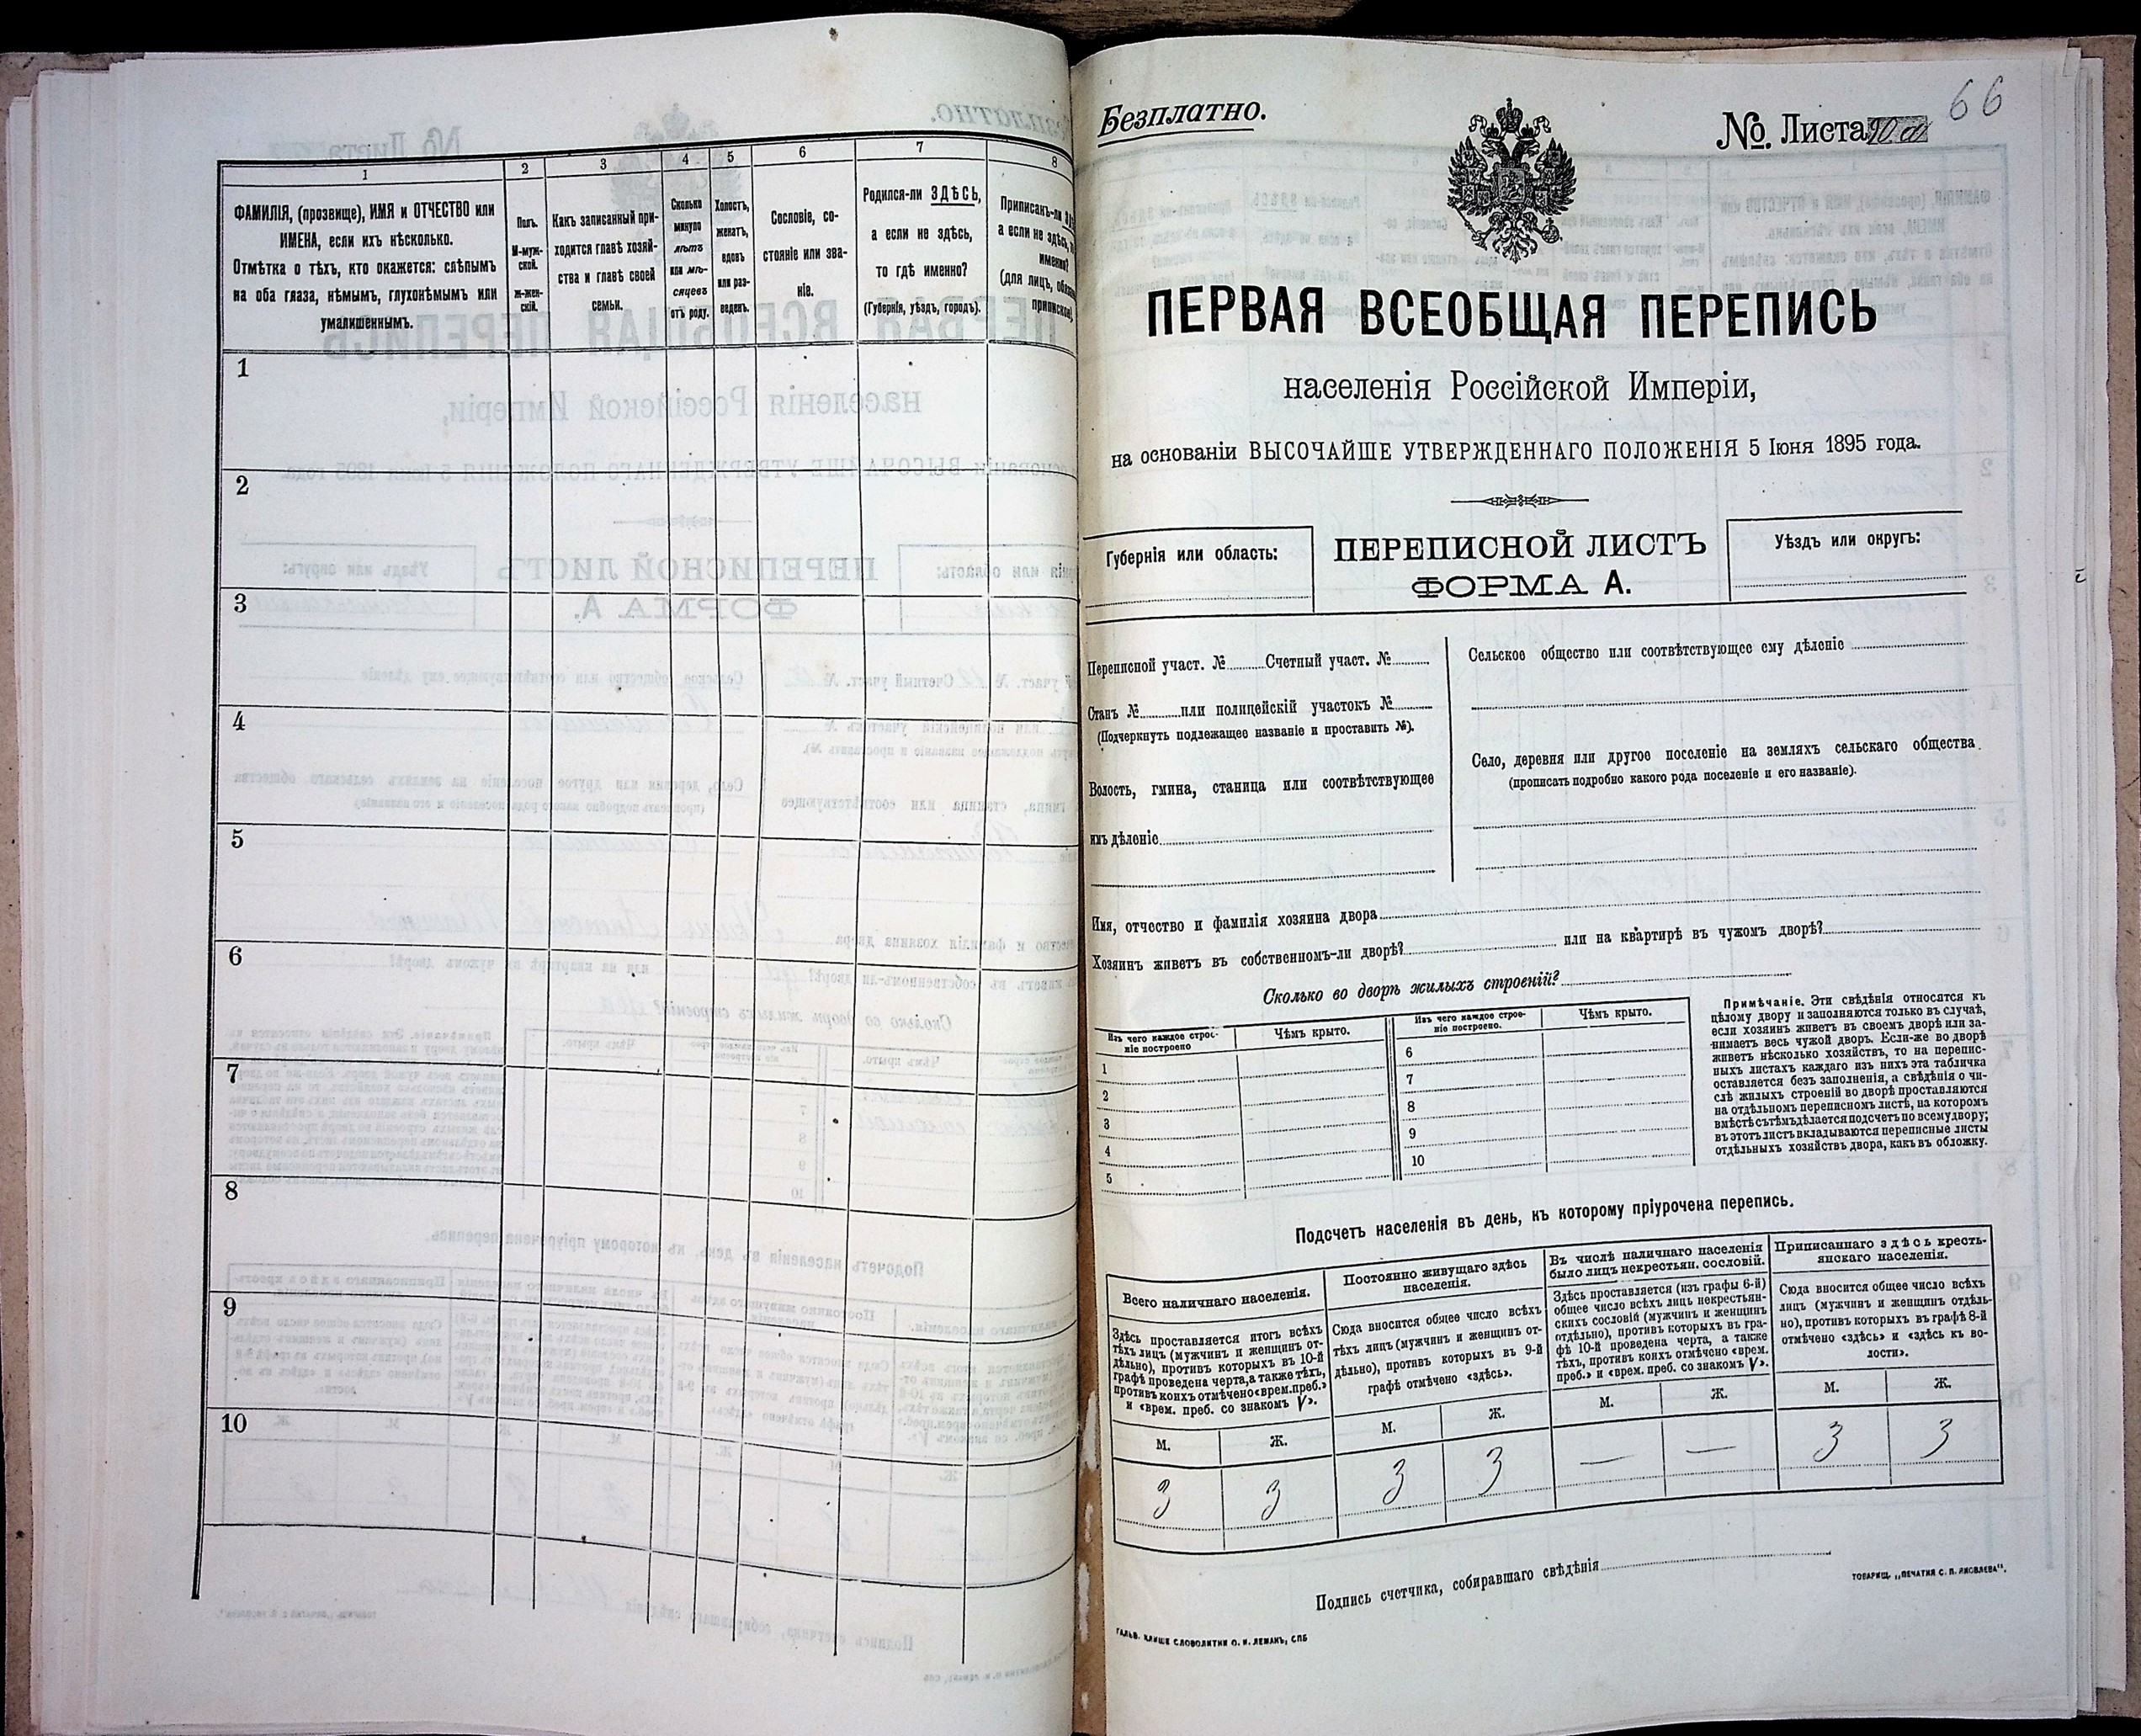 1
2
3
4
5
6
7
8
ФАМИЛІЯ, (прозвище), ИМЯ и ОТЧЕСТВО или
ИМЕНА, если ихъ нѣсколько.
Отмѣтка о тѣхъ, кто окажется: слѣпымъ
на оба глаза, нѣмымъ, глухонѣмымъ или
умалишеннымъ.
Полъ.
М-муж-
ской.
Ж-жен-
скій.
Какъ записанный при-
ходится главѣ хозяй-
ства и главѣ своей
семьи.
Сколько
минуло
лѣтъ
или мѣ-
сяцевъ
отъ роду.
Холостъ,
женатъ,
вдовъ
или раз-
веденъ.
Сословіе, со-
стояніе или зва-
ніе.
Родился-ли ЗДѢСЬ,
а если не здѣсь,
то гдѣ именно?
(Губернія, уѣздъ, городъ).
Приписанъ-ли
а если не здѣсь,
именно?
(для лицъ,
1
2
3
4
5
6
7
8
9
10
66
Безплатно.
№. Листа
ПЕРВАЯ ВСЕОБЩАЯ ПЕРЕПИСЬ
населенія Россійской Имперіи,
на основаніи ВЫСОЧАЙШЕ УТВЕРЖДЕННАГО ПОЛОЖЕНІЯ 5 Іюня 1895 года.
Губернія или область:
ПЕРЕПИСНОЙ ЛИСТЪ
ФОРМА А.
Уѣздъ или округъ:
Переписной участ. № Счетный участ. №
Станъ № или полицейскій участокъ №
(Подчеркнуть подлежащее названіе и проставить №).
Волость, гмина, станица или соотвѣтствующее
имъ дѣленіе
Сельское общество или соотвѣтствующее ему дѣленіе
Село, деревня или другое поселеніе на земляхъ сельскаго общества
(прописать подробно какого рода поселеніе и его названіе).
Имя, отчество и фамилія хозяина двора
Хозяинъ живетъ въ собственномъ-ли дворѣ? или на квартирѣ въ чужомъ дворѣ?
Сколько во дворѣ жилыхъ строеній?
Изъ чего каждое строе-
ніе построено
Чѣмъ крыто.
Изъ чего каждое строе-
ніе построено.
Чѣмъ крыто.
1
2
3
4
5
6
7
8
9
10
Примѣчаніе. Эти свѣдѣнія относятся къ
цѣлому двору и заполняются только въ случаѣ,
если хозяинъ живетъ въ своемъ дворѣ или за-
нимаетъ весь чужой дворъ. Если-же во дворѣ
живетъ нѣсколько хозяйствъ, то на перепис-
ныхъ листахъ каждаго изъ нихъ эта табличка
оставляется безъ заполненія, а свѣдѣнія о чи-
слѣ жилыхъ строеній во дворѣ проставляются
на отдѣльномъ переписномъ листѣ, на которомъ
вмѣстѣ съ тѣмъ дѣлается подсчетъ по всему двору;
въ этотъ листъ вкладываются переписные листы
отдѣльныхъ хозяйствъ двора, какъ въ обложку.
Подсчетъ населенія въ день, къ которому пріурочена перепись.
Всего наличнаго населенія.
Здѣсь проставляется итогъ всѣхъ
тѣхъ лицъ (мужчинъ и женщинъ от-
дѣльно), противъ которыхъ въ 10-й
графѣ проведена черта, а также тѣхъ,
противъ коихъ отмѣчено «врем. преб.»
и «врем. преб. со знакомъ V».
Постоянно живущаго здѣсь
населенія.
Сюда вносится общее число всѣхъ
тѣхъ лицъ (мужчинъ и женщинъ от-
дѣльно), противъ которыхъ въ 9-й
графѣ отмѣчено «здѣсь».
Въ числѣ наличнаго населенія
было лицъ некрестьян. сословій.
Здѣсь проставляется (изъ графы 6-й)
общее число всѣхъ лицъ некрестьян-
скихъ сословій (мужчинъ и женщинъ
отдѣльно), противъ которыхъ въ гра-
фѣ 10-й проведена черта, а также
тѣхъ, противъ коихъ отмѣчено «врем.
преб.» и «врем. преб. со знакомъ V».
Приписаннаго здѣсь кресть-
янскаго населенія.
Сюда вносится общее число всѣхъ
лицъ (мужчинъ и женщинъ отдѣль-
но), противъ которыхъ въ графѣ 8-й
отмѣчено «здѣсь» и «здѣсь къ во-
лости».
М. Ж. М. Ж. М. Ж. М. Ж.
3 3 3 3 — — 3 3
Подпись счетчика, собиравшаго свѣдѣнія
ТОВАРИЩ. „ПЕЧАТНЯ С. П. ЯКОВЛЕВА".
ГАЛЬВ. КЛИШЕ СЛОВОЛИТНИ О. И. ЛЕМАНЪ, СПБ